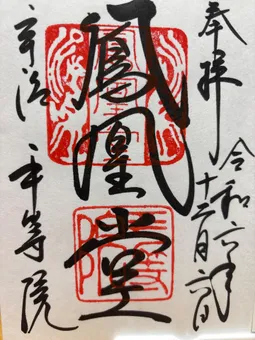 奉拝
令和六年
十二月六日
鳳凰堂
宇治
平等院